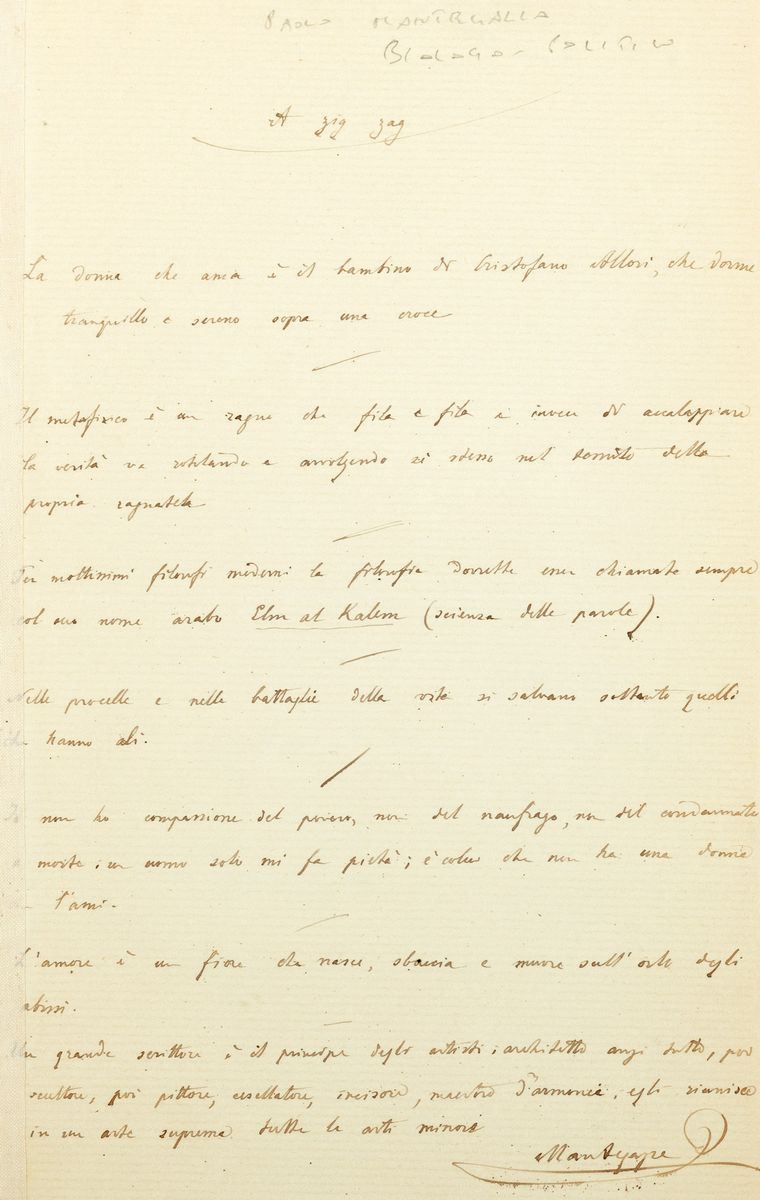 PAOLO MANTEGAZZA
BIOLOGO - POLITICO
A zig zag
La donna che ama è il bambino di Cristofano Allori, che dorme
tranquillo e sereno sopra una croce
Il metafisico è un ragno che fila e fila e invece di accalappiare
la verità va rotolando e avvolgendo sè stesso nel
della
propria ragnatela
Per moltissimi filosofi moderni la filosofia dovrebbe esser chiamata sempre
col suo nome arabo Elm al Kalem (scienza delle parole).
Nelle procelle e nelle battaglie della vita si salvano soltanto quelli
che hanno ali.
Io non ho compassione del povero, non del naufrago, non del condannato
a morte; un uomo solo mi fa pietà; è colui che non ha una donna
l'ami.
L'amore è un fiore che nasce, sboccia e muore sull'orlo degli
abissi.
Un grande scrittore è il principe degli artisti; architetto anzi tutto, poi
scultore, poi pittore, cesellatore, incisore, maestro d'armonia, egli riunisce
in un arte suprema tutte le arti minori
Mantegazza